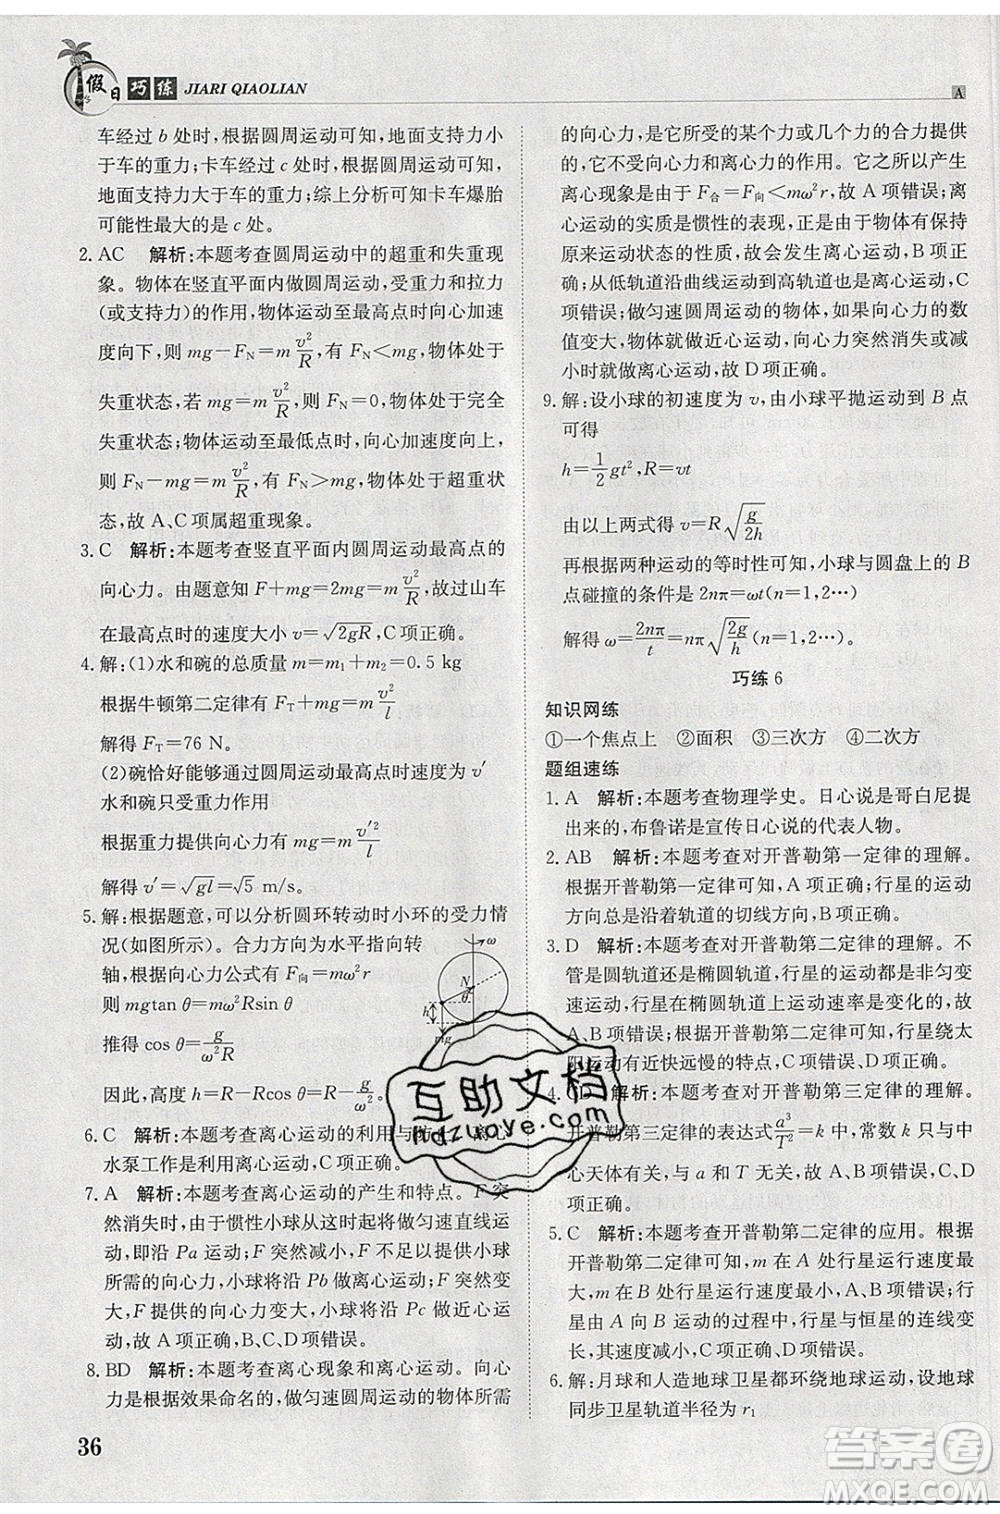 假日 巧练 JIARI QIAOLIAN
A
车经过 b 处时,根据圆周运动可知,地面支持力小
于车的重力;卡车经过 c 处时,根据圆周运动可知,
地面支持力大于车的重力;综上分析可知卡车爆胎
可能性最大的是 c 处。
2. AC 解析:本题考查圆周运动中的超重和失重现
象。物体在竖直平面内做圆周运动,受重力和拉力
(或支持力)的作用,物体运动至最高点时向心加速
度向下,则 mg-F_N=m v²/R,有 F_N<mg,物体处于
失重状态,若 mg=m v²/R,则 F_N=0,物体处于完全
失重状态;物体运动至最低点时,向心加速度向上,
则 F_N-mg=m v²/R,有 F_N>mg,物体处于超重状
态,故 A、C 项属超重现象。
3. C 解析:本题考查竖直平面内圆周运动最高点的
向心力。由题意知 F+mg=2mg=m v²/R,故过山车
在最高点时的速度大小 v=√(2gR),C 项正确。
4. 解:(1)水和碗的总质量 m=m₁+m₂=0.5 kg
根据牛顿第二定律有 F_T-mg=m v²/l
解得 F_T=76 N。
(2)碗恰好能够通过圆周运动最高点时速度为 v′
水和碗只受重力作用
根据重力提供向心力有 mg=m v′²/l
解得 v′=√(gl)=√5 m/s。
5. 解:根据题意,可以分析圆环转动时小环的受力情
况(如图所示)。合力方向为水平指向转
轴,根据向心力公式有 F_向=mω²r
则 mgtan θ=mω²Rsin θ
推得 cos θ=g/(ω²R)
因此,高度 h=R-Rcos θ=R-g/ω²。
ω
N
θ
h
mg
6. C 解析:本题考查离心运动的利用与防止。离心
水泵工作是利用离心运动,C 项正确。
7. A 解析:本题考查离心运动的产生和特点。F 突
然消失时,由于惯性小球从这时起将做匀速直线运
动,即沿 Pa 运动;F 突然减小,F 不足以提供小球
所需的向心力,小球将沿 Pb 做离心运动;F 突然变
大,F 提供的向心力变大,小球将沿 Pc 做近心运
动,A 项正确,B、C、D 项错误。
8. BD 解析:本题考查离心现象和离心运动。向心
力是根据效果命名的,做匀速圆周运动的物体所需
的向心力,是它所受的某个力或几个力的合力提供
的,不受向心力和离心力的作用。它之所以产生
离心现象是由于 F_合=F_向<mω²r,故 A 项错误;离心
运动的实质是惯性的表现,实质中,由于物体有保持
原来运动状态的性质,故会发生离心运动,B 项正
确;从低轨道沿曲线运动到高轨道是离心运动,C
项错误;做匀速圆周运动的物体,如果向心力的数
值变大,离心运动不会发生,向心力突然消失或减
小时就做离心运动,故 D 项正确。
9. 解:设小球的初速度为 v,由小球平抛运动到 B 点
可得
h=1/2 gt²,R=vt
由以上两式得 v=R√(g/2h)
再根据两种运动的等时性可知,小球与圆盘上的 B
点碰撞的条件是 2nπ=ωt(n=1,2…)
解得 ω=2nπ/t=nπ√(2g/h)(n=1,2…)。
巧练 6
知识网练
①一个焦点上 ②面积 ③三次方 ④二次方
题组速练
1. A 解析:本题考查物理学史。日心说是哥白尼提
出来的,布鲁诺是宣传日心说的代表人物。
2. AB 解析:本题考查对开普勒第一定律的理解。
根据开普勒第一定律知 A 项正确。行星的运动
方向总是沿着轨道的切线方向,B 项正确。
3. D 解析:本题考查对开普勒第二定律的理解。不
管是圆轨道还是椭圆轨道,行星的运动都是非匀变
速运动,行星在椭圆轨道上运动速率是变化的,故
A、B 项错误;根据开普勒第二定律知,行星绕太
阳运动有近快远慢的特点,C 项错误,D 项正确。
4. CD 解析:本题考查对开普勒第三定律的理解。
开普勒第三定律的表达式 a³/T²=k 中,常数 k 只与中
心天体有关,与 a 和 T 无关,故 A、B 项错误,C、D
项正确。
5. C 解析:本题考查开普勒第二定律的应用。根据
开普勒第二定律可知,m 在 A 处行星运行速度最
大,m 在 B 处行星运行速度最小,A、B 项错误;行
星从 A 向 B 运动的过程中,行星与恒星的连线变
长,其速度减小,故 C 项正确,D 项错误。
6. 解:月球和人造地球卫星都环绕地球运动,设地球
同步卫星轨道半径为 r₁
36
互助文档
hdzuoye.com
答案圈
MXQE.COM